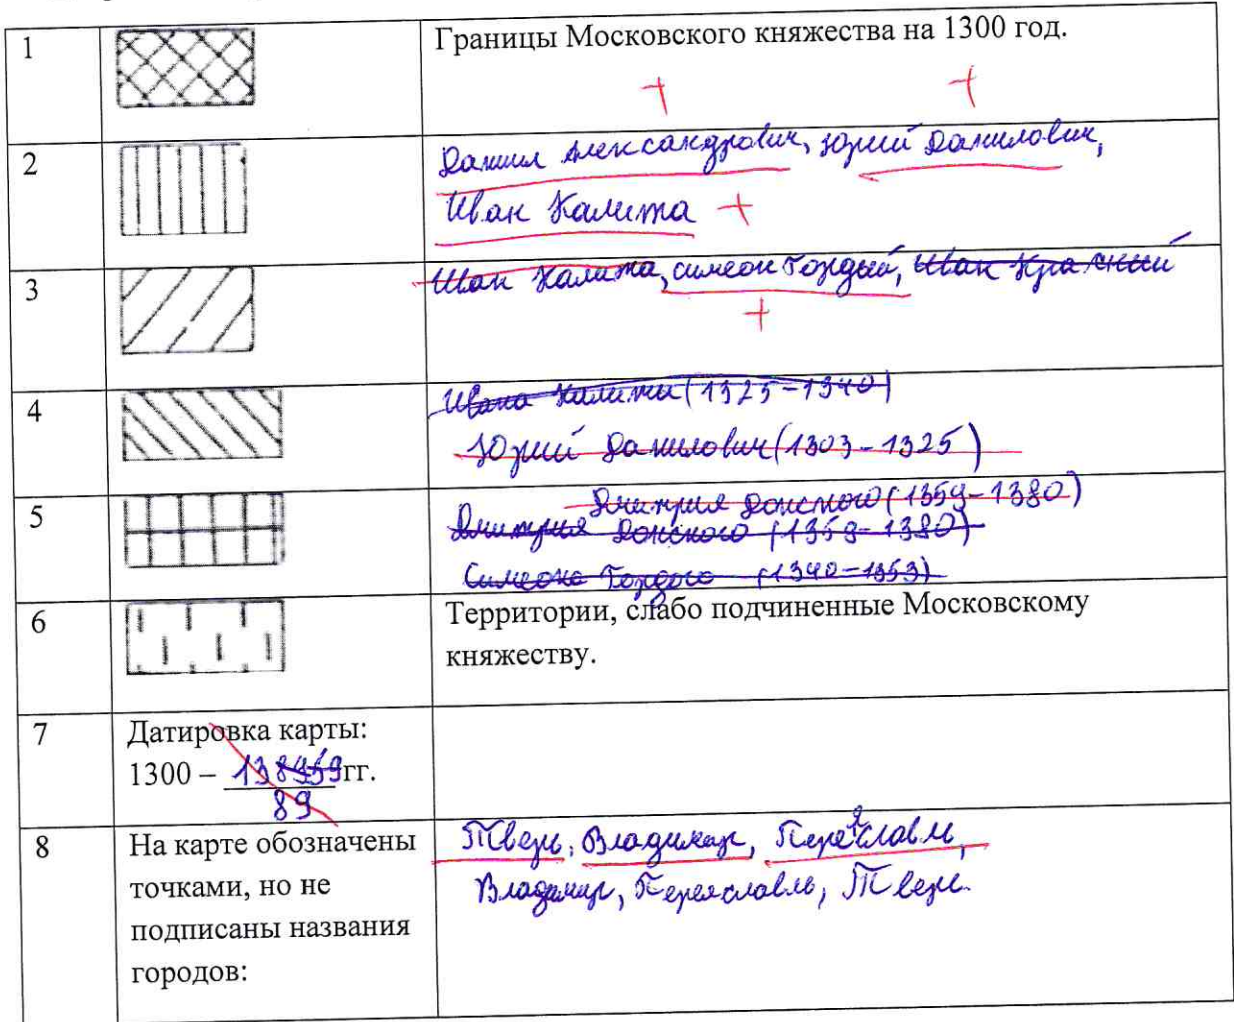 1
Границы Московского княжества на 1300 год.
+ +
2
Данил Александрович, Юрий Данилович,
Иван Калита +
3
Иван Калита, симеон Гордый, Иван Красный
+
4
Ивана Калиты (1325-1340)
Юрий Данилович (1303-1325)
5
Дмитрия Донского (1359-1380)
Дмитрия Донского (1359-1380)
Симеона Гордого (1340-1353)
6
Территории, слабо подчиненные Московскому
княжеству.
7
Датировка карты:
1300 – гг.
89
8
На карте обозначены
точками, но не
подписаны названия
городов:
Тверь, Владимир, Переяславль,
Владимир, Переяславль, Тверь.